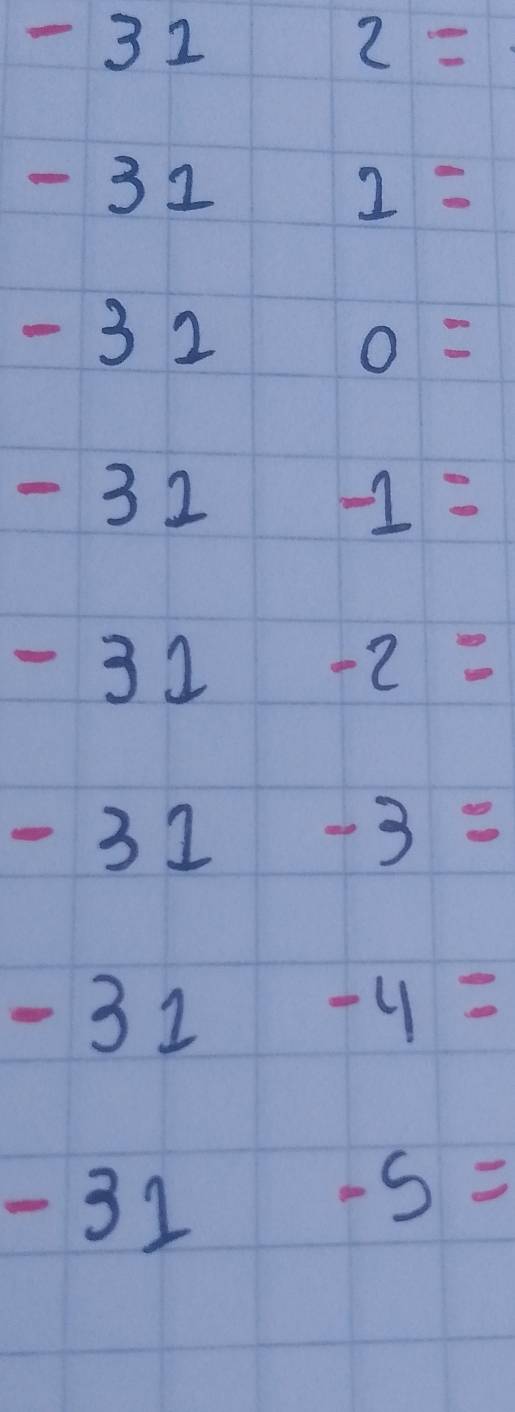 - 31 2 =
- 31 1 =
- 31 0 =
- 31 -1 =
- 31 -2 =
- 31 -3 =
- 31 -4 =
- 31 -5 =